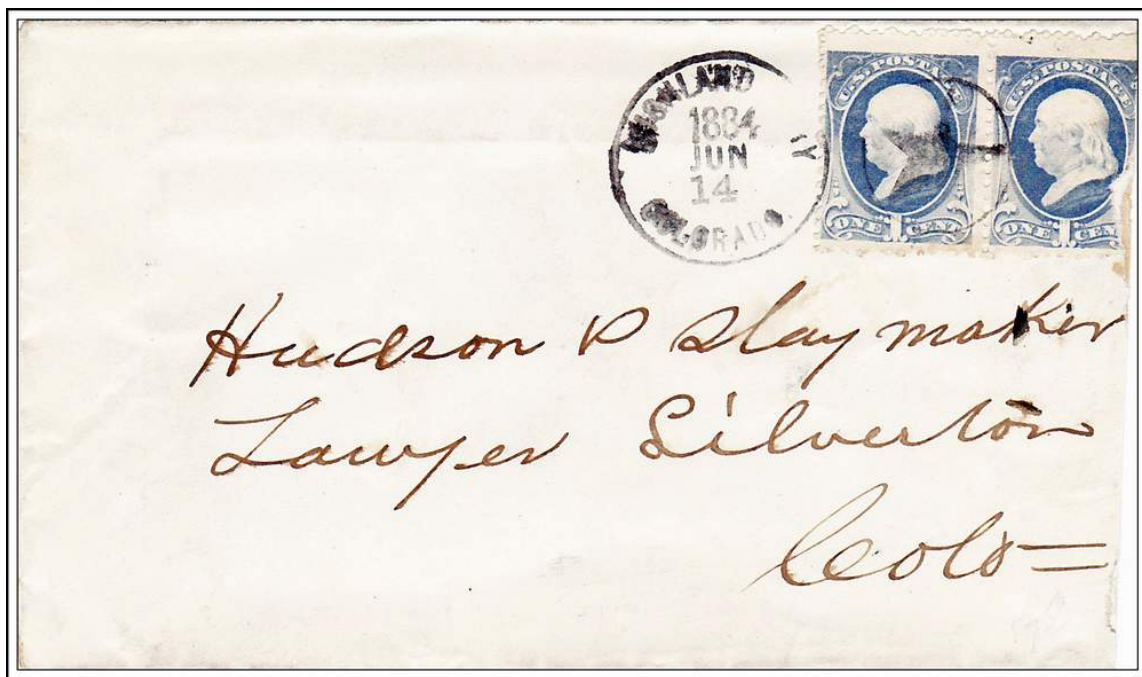 HIGHLAND
1884
JUN
14
COLORADO.
U.S. POSTAGE
ONE 1 CENT
U.S. POSTAGE
ONE 1 CEN
Hudson P Slaymaker
Lawyer Silverton
Colo=